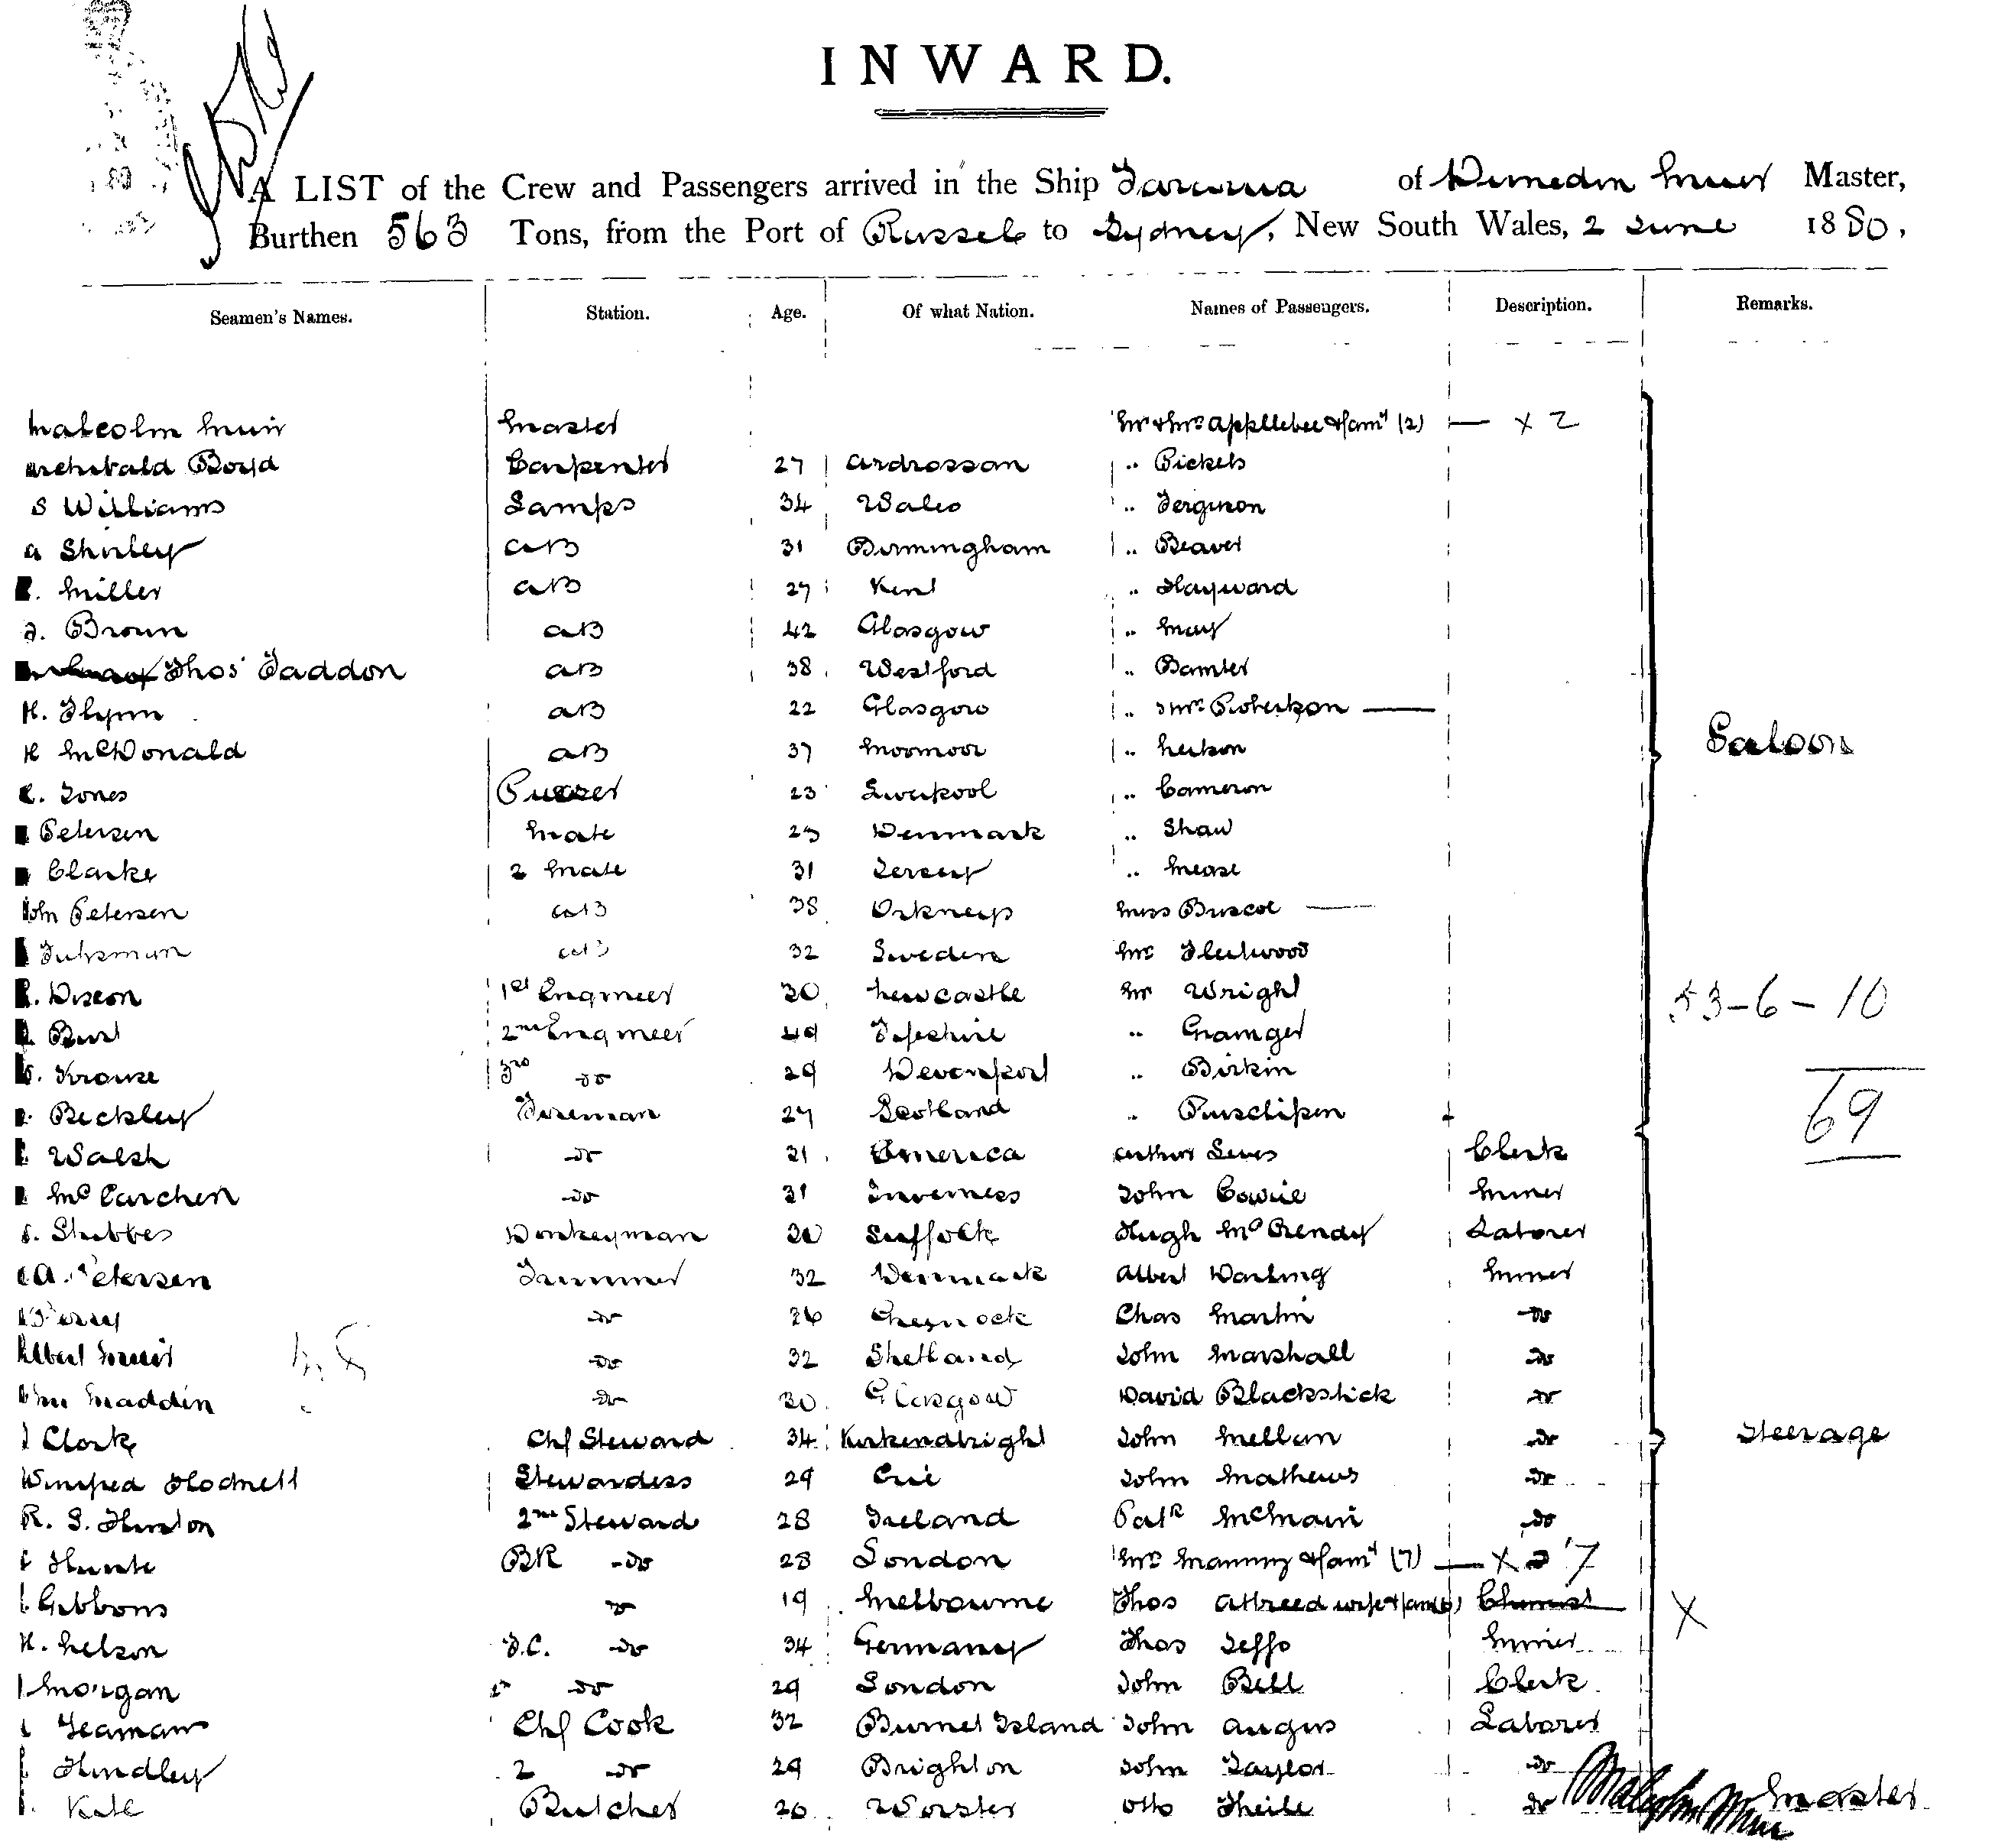 INWARD.
A LIST of the Crew and Passengers arrived in the Ship Tararua of Dunedin Muir Master,
Burthen 563 Tons, from the Port of Russell to Sydney, New South Wales, 2 June 1880.
Seamen's Names. Station. Age. Of what Nation. Names of Passengers. Description. Remarks.
Malcolm Muir Master Mr & Mrs Appllebee & famy (2) — x 2
Archibald Boyd Carpenter 27 Ardrossan .. Pickels
S Williams Lamps 34 Wales .. Ferguson
A Shirley AB 31 Birmingham .. Beaver
Miller AB 27 Kent .. Hayward
Brown AB 42 Glasgow .. May
Thos Taddon AB 38 Westford .. Bamler
H. Flynn AB 22 Glasgow .. & Mrs Robertson —
H McDonald AB 37 .. Nelson
Jones Purser 23 Liverpool .. Cameron
Petersen Mate 29 Denmark .. Shaw
Clarke 2 Mate 31 Jersey .. Mease
John Petersen AB 38 Orkneys Miss Biscoe —
AB 32 Sweden Mrs Fleetwood
Saloon
Dixon 1st Engineer 30 Newcastle Mr Wright
53-6-10
Burt 2nd Engineer 49 Fifeshire .. Grainger
Krouse 3rd do 29 Devonport .. Birkin
Beckley Fireman 27 Scotland ..
69
Walsh do 21 America Arthur Clerk
do 31 Inverness John Cowie Miner
Stubbes Donkeyman 30 Suffolk Hugh Laborer
A. Petersen Trimmer 32 Denmark Albert Darling Miner
do 26 Greenock Chas Martin do
Albert Muir do 32 Shetland John Marshall do
Maddin do 30 Glasgow David Blackstick do
Clark Chf Steward 34 Kirkendbright John Mellun do
Steerage
Winifred Hodnell Stewardess 29 Erie John Mathews do
R. S. Thurston 2nd Steward 28 Ireland Patk McMain do
Hunte BR do 28 London Mrs Manning & famy (7) — x 7
Gibbons do 19 Melbourne Thos Attreed wife & fam Chemist X
H. Nelson F.C. do 34 Germany Thos Jeffs Miner
Morgan do 29 London John Bell Clerk
Yeaman Chf Cook 32 Burnet Island John Angus Laborer
Hindley 2 do 29 Brighton John Taylor do
Butcher 26 Worster Otto Theile do Malcolm Muir Master